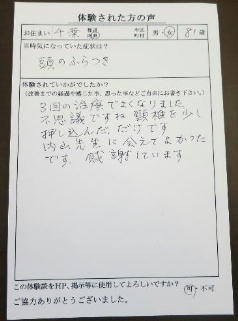 体験された方の声
お住まい 千葉 都道府県 市区町村 男・女 81歳
※時気になっていた症状は?
頭のふらつき
体験されていかがでしたか?
(改善までの経過や感じた事、思った事などご自由にお書き下さい。)
3回の治療でよくなりました
不思議ですね 頸椎を少し
押し込んだだけです
内山先生に会えてよかった
です。感謝しています
この体験談をHP、掲示等に使用してよろしいですか? 可・不可
ご協力ありがとうございました。